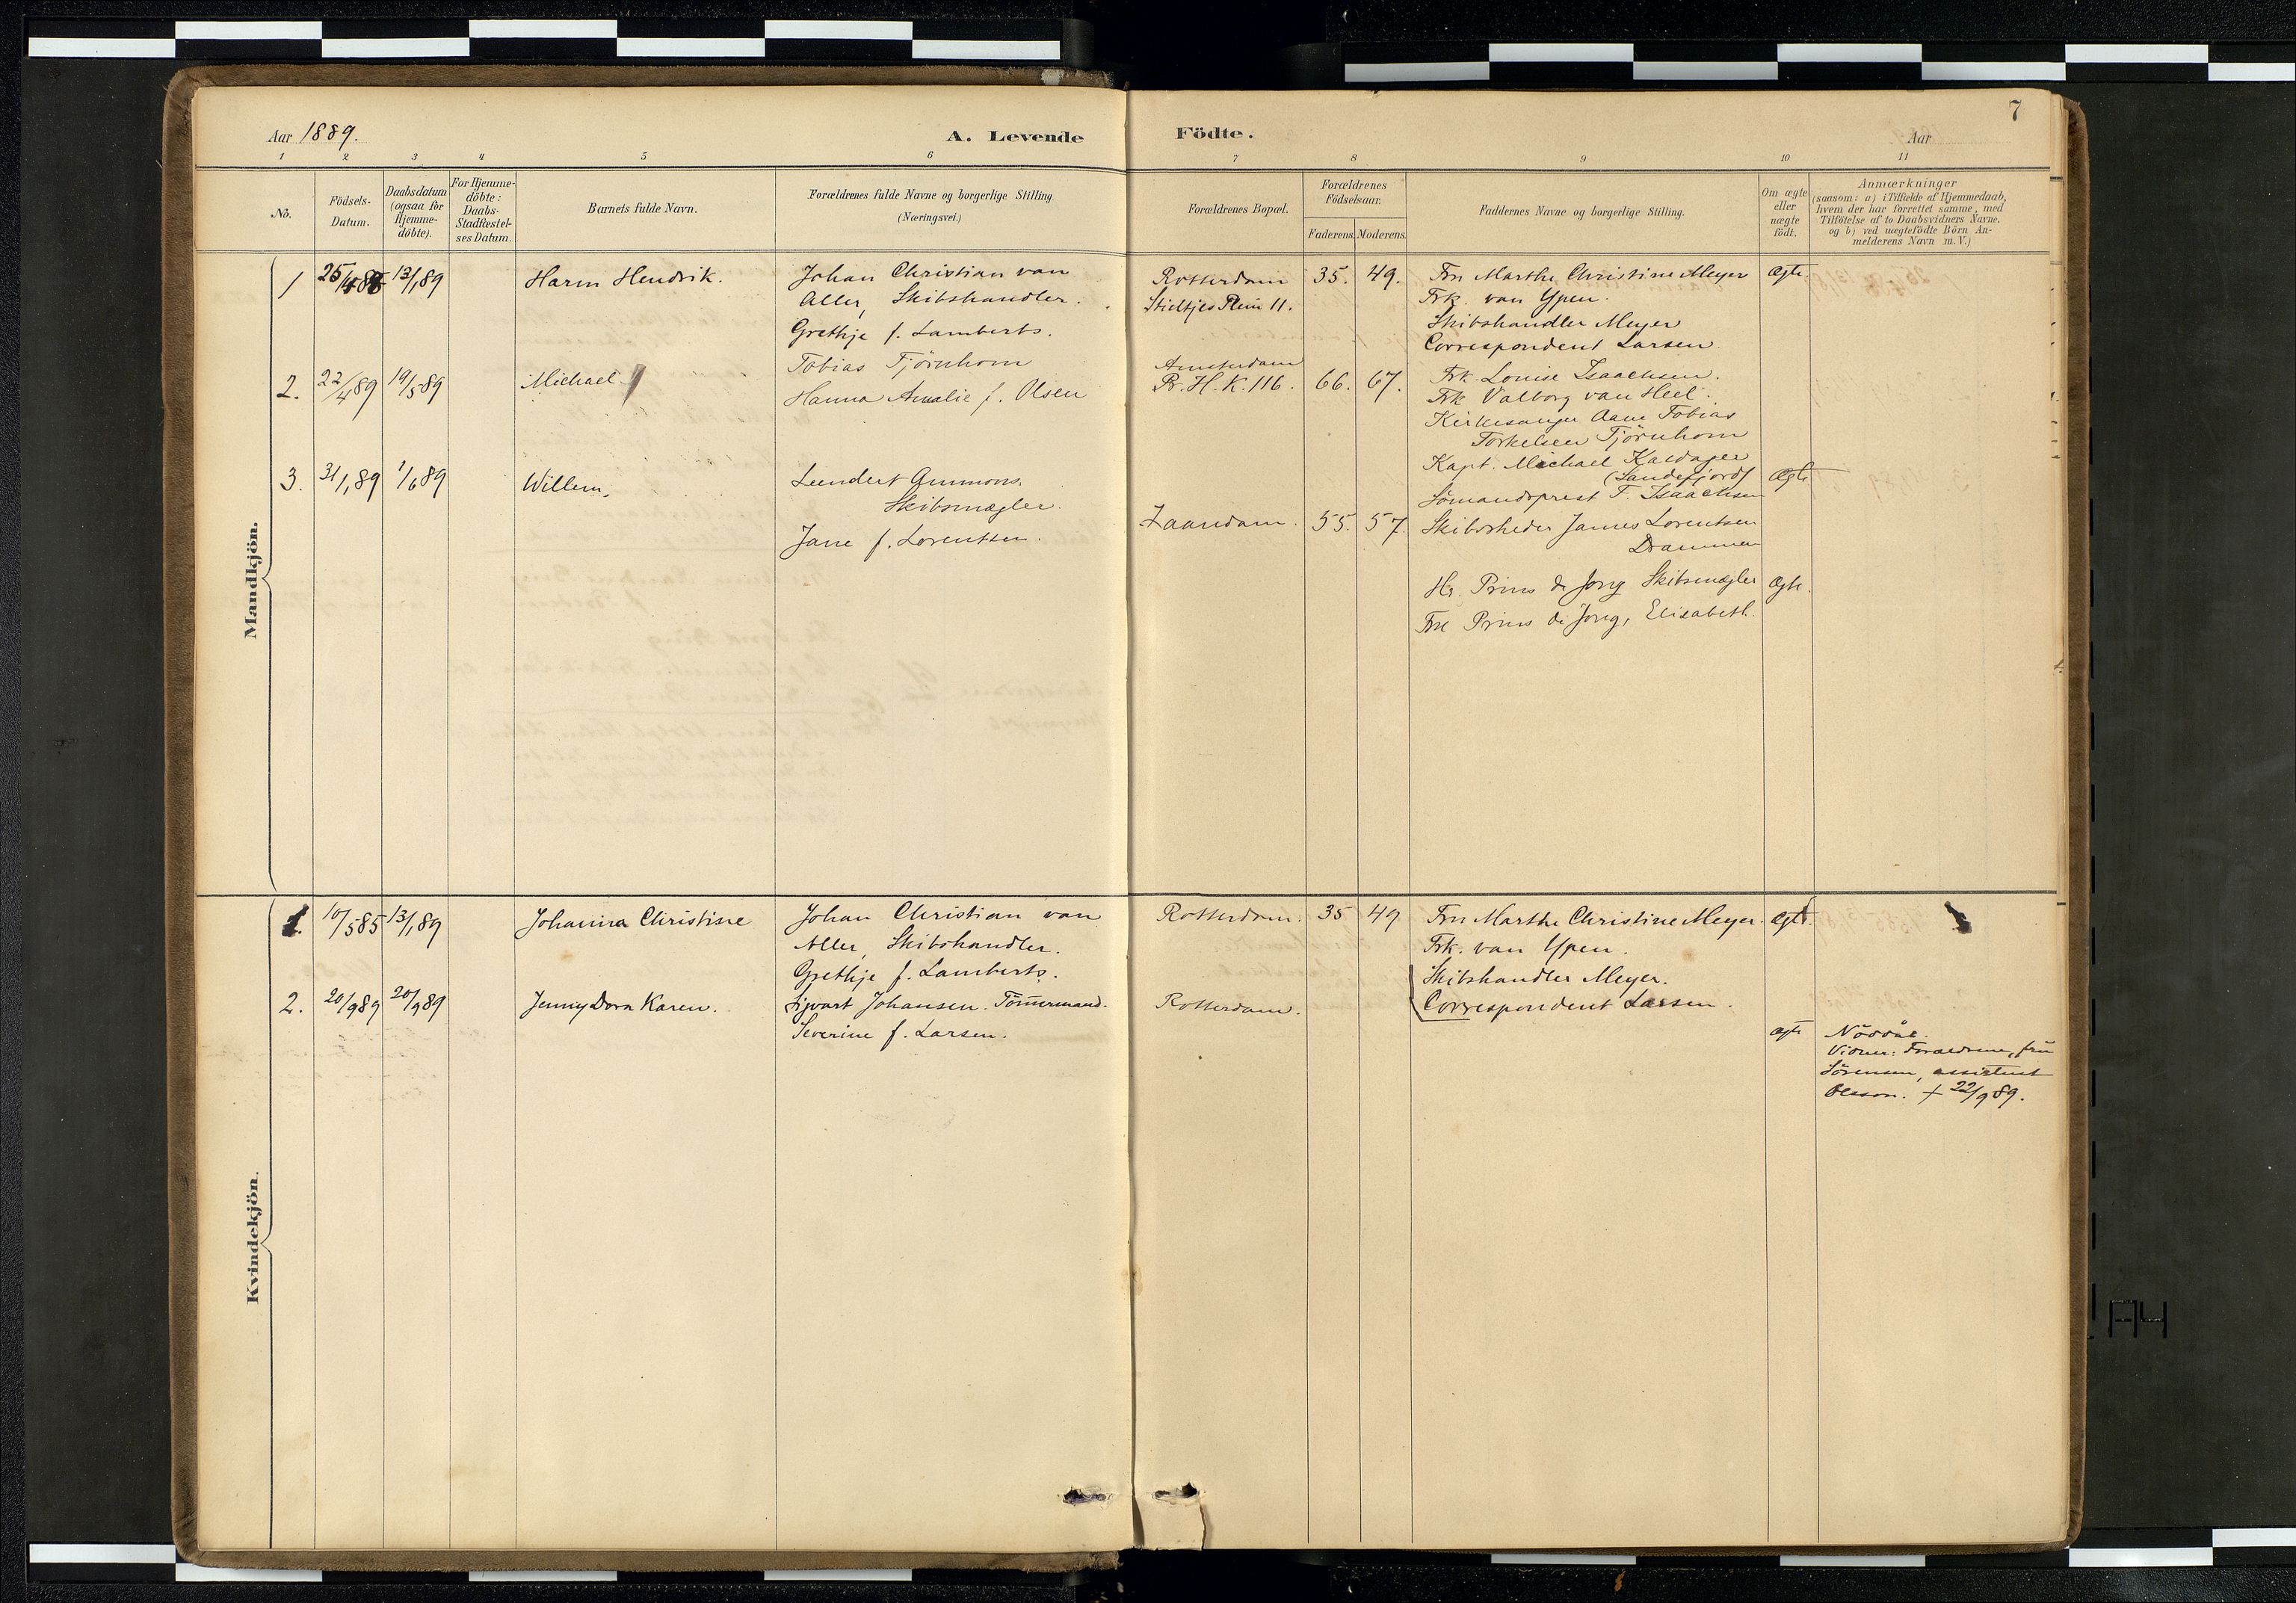 Aar 1889.
A. Levende
Födte.
Aar
7
1 2 3 4 5 6 7 8 9 10 11
No.
Födsels-
Datum.
Daabsdatum
(ogsaa for
Hjemme-
döbte).
For Hjemme-
döbte:
Daabs-
Stadfæstel-
ses Datum.
Barnets fulde Navn.
Forældrenes fulde Navne og borgerlige Stilling
(Næringsvei.)
Forældrenes Bopæl.
Forældrenes
Födselsaar.
Faderens. Moderens.
Faddernes Navne og borgerlige Stilling.
Om ægte
eller
uægte
födt.
Anmærkninger
(saasom: a) i Tilfælde af Hjemmedaab,
hvem der har forrettet samme, med
Tilföielse af to Daabsvidners Navne.
og b) ved uægtefödte Börn An-
melderens Navn m.V.)
Mandkjön.
1 13/1 89 Harm Hendrik.
Johan Christian van
Aller, Skibshandler.
Grethje f. Lamberts.
Rotterdam
Stieltjes Plein 11.
35. 49.
Fru Marthe Christine Meyer
Frk. van Ypen.
Skibshandler Meyer
Correspondent Larsen.
Ægte.
2. 22/4 89 19/5 89 Michael
Tobias Tjörnhom
Hanna Amalie f. Olsen
Amsterdam
Pr. H. K. 116.
66. 67.
Frk. Louise Isaachsen.
Frk Valborg van Heel.
Kirkesanger Aane Tobias
Torkelsen Tjörnhom
Kapt. Michael Kaldager
(Sandefjord)
Sömandsprest T. Isaachsen
Ægte
3. 31/1 89 1/6 89 Willem.
Leendert Gmmons.
Skibsmægler.
Jane f. Lorentsen.
Zaandam.
55. 57.
Skibsrheder James Lorentsen
Drammen
Hr. Prins de Jong Skibsmægler
Frk Prins de Jong, Elisabeth.
Ægte.
Kvindekjön.
1. 10/5 85 13/1 89 Johanna Christine
Johan Christian van
Aller, Skibshandler.
Grethje f. Lamberts.
Rotterdam.
35 49
Fru Marthe Christine Meyer.
Frk. van Ypen.
Skibshandler Meyer.
Correspondent Larsen.
Ægte.
2. 20/9 89 20/9 89 Jenny Dora Karen.
Sigvart Johansen. Tömmermand.
Severine f. Larsen.
Rotterdam.
Ægte
Nöddåb.
Vidner: Forældrene, fru
Sörensen, assistent
Olsson. + 22/9 89.